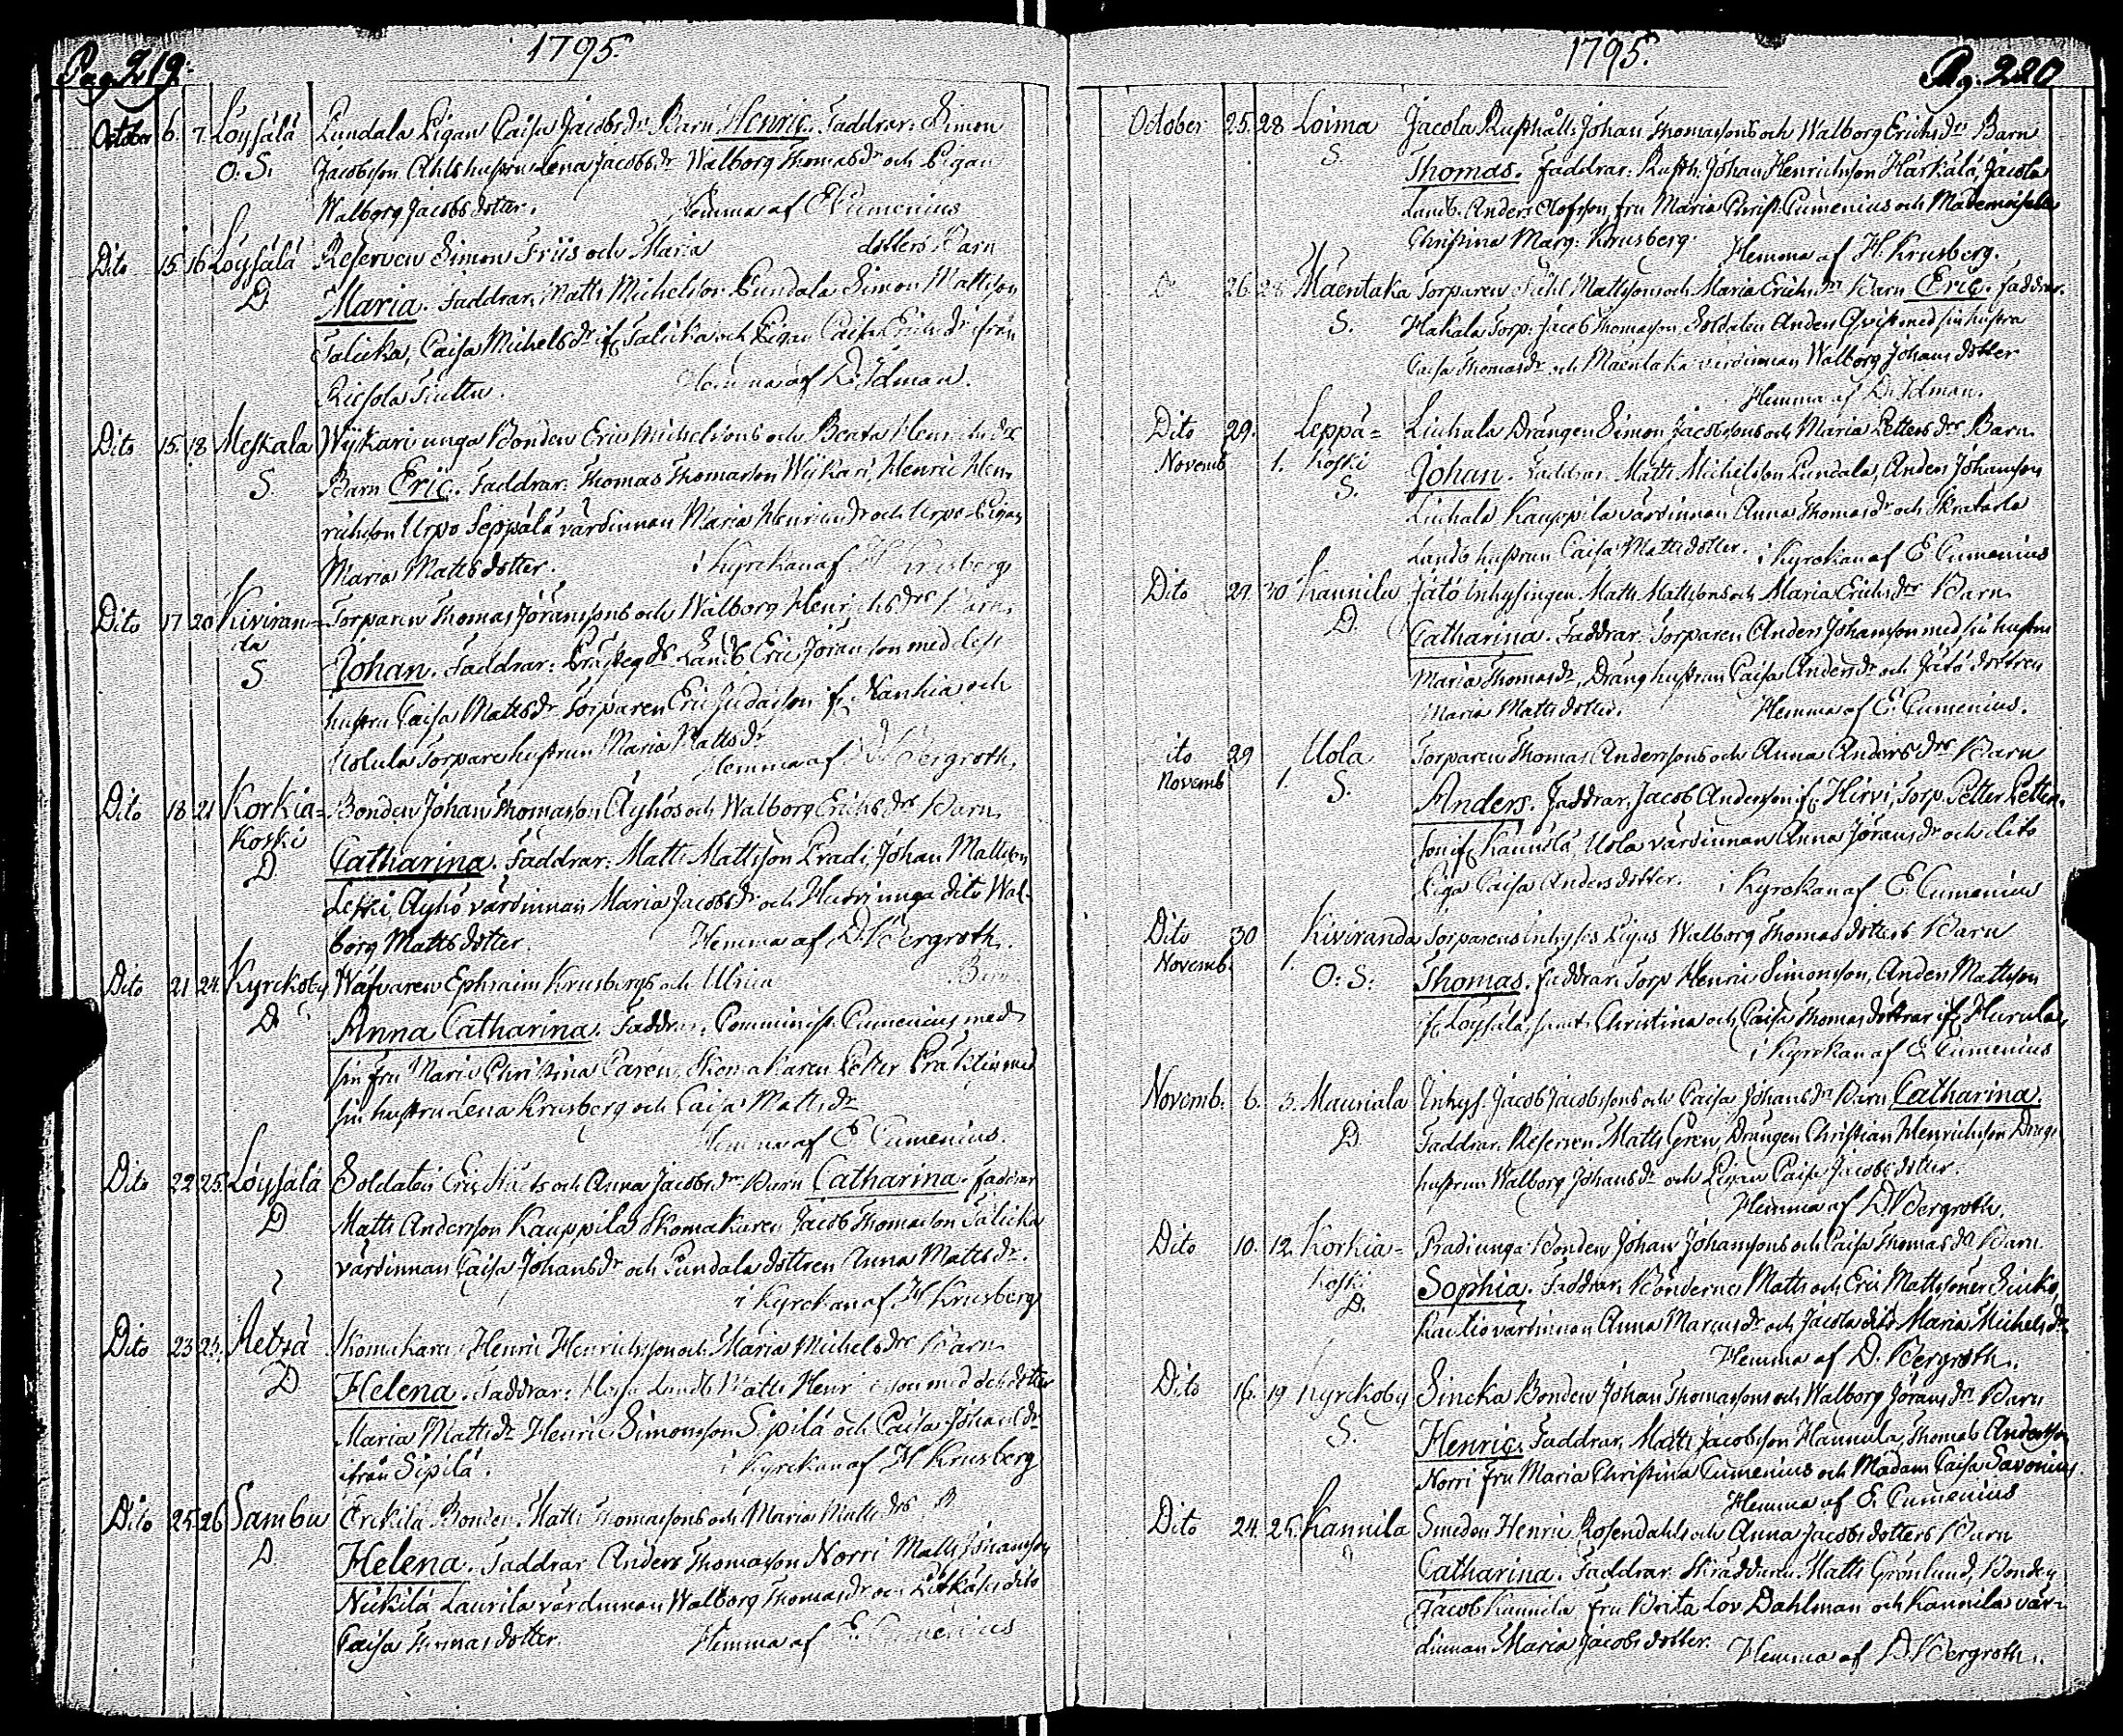 Pag. 219.
1795.
October 6. 7. Loysälä Pundala Pigan Caisa Jacobs dr Barn Henric. Faddrar: Simon
O. S. Jacobsson Ahlshustru Lena Jacobsdr Walborg Thomasdr och Pigan
Walborg Jacobsdotter. Hemma af E Cumenius
Dito 15 16 Loysälä Reserven Simon Friis och Maria dotters Barn
D. Maria. Faddrar, Matts Michelsson Pundala Simon Mattsson
Talicka, Caisa Michelsdr if. Talicka och Pigan Caisa Erichsdr ifrån
Hemma af D. Idman.
Dito 15. 18 Meskala Wijkari unga Bonden Eric Michelssons och Beata Henrichsdrs
S. Barn Eric. Faddrar: Thomas Thomasson Wijkari, Henric Hen-
richsson Urpo Seppälä värdinnan Maria Henricsdr och Urpo Pigan
Maria Mattsdotter. i Kyrckan af H Krusberg
Dito 17 20 Kiviran= Torparen Thomas Jöranssons och Walborg Henrichsdrs Barn
da Johan. Faddrar: Landb Eric Jöransson med dess
S. hustru Caisa Mattsdr Torparen Eric Judasson if. Nanhia och
Torparehustrun Maria Mattsdr
Hemma af D. Bergroth.
Dito 18 21 Korkia= Bonden Johan Thomasson Äyhös och Walborg Erichsdrs Barn
Koski Catharina. Faddrar: Matts Mattsson Pradi, Johan Mattsson
D. Äyhö värdinnan Maria Jacobsdr och unga dito Wal-
borg Mattsdotter. Hemma af D. Bergroth.
Dito 21 24. Kyrckoby Wäfvaren Ephraim Krusbergs och Ulrica Barn
D. Anna Catharina. Faddrar, Comminist. Cumenius med
sin fru Maria Christina Caren, Skomakaren Petter med
sin hustru Lena Krusberg och Caisa Mattsdr
Hemma af E Cumenius.
Dito 22 25. Loysälä Soldaten Eric och Anna Jacobsdrs Barn Catharina. Faddrar
D. Matts Andersson Kauppila Skomakaren Jacob Thomasson Talicka
värdinnan Caisa Johansdr och Pundala dottren Anna Mattsdr.
i Kyrckan af H Krusberg
Dito 23 25. Aetzä Skomakare Henric Henrichsson och Maria Michelsdrs Barn
D. Helena. Faddrar: Landb Matts Henricsson med dotter
Maria Mattsdr Henric Simonsson Sipilä och Caisa Johansdr
ifrån Sipilä. i Kyrckan af H Krusberg
Dito 25 26 Sambu Erckilä Bonden Matts Thomassons och Maria Mattsdrs B
D Helena. Faddrar Anders Thomasson Norri Matts Johansson
Nickilä Laurila värdinnan Walborg Thomasdr och dito
Caisa Thomasdotter. Hemma af E. Cumenius
1795.
Pag. 220
October 25. 28 Loima Jacola Rusthålls Johan Thomassons och Walborg Erichsdrs Barn
S. Thomas. Faddrar: Rusth. Johan Henrichsson Härkälä, Jacola
Landb. Anders Olofsson, fru Maria Christ. Cumenius och Mademoiselle
Christina Marg: Krusberg. Hemma af H. Krusberg.
Do 26. 28 Maentaka Torparen Michl Mattssons och Maria Erichsdrs Barn Eric. Faddrar.
S. Hakala Torp: Jacob Thomasson, Soldaten Anders Qvist med sin hustru
Caisa Thomasdr och Maentaka värdinnan Walborg Johansdotter
Hemma af D. Idman.
Dito 29. Leppä= Liuhala Drängen Simon Jacobssons och Maria Petters drs Barn
Novemb. 1. koski Johan. Faddrar. Matts Michelsson Pundala, Anders Johansson
S. Liuhala Kauppila värdinnan Anna Thomasdr och
Landb hustrun Caisa Mattsdotter. i Kyrckan af E Cumenius
Dito 29 30 Kannila Jätö Inhysingen Matts Mattssons och Maria Erichsdrs Barn
D. Catharina. Faddrar: Torparen Anders Johansson med sin hustru
Maria Thomasdr, Dräng hustrun Caisa Andersdr och Jätö dottren
Maria Mattsdotter. Hemma af E. Cumenius.
ito 29 Uola Torparen Thomas Anderssons och Anna Andersdrs Barn
Novemb 1. S. Anders. Faddrar. Jacob Andersson if. Hirvi, Torp. Petter Petters-
son if. Kannila, Uola värdinnan Anna Jöransdr och dito
Piga Caisa Andersdotter. i Kyrckan af E. Cumenius
Dito 30 Kiviranda Torparens Inhyses Pigas Walborg Thomasdotters Barn
Novemb. 1. O: S: Thomas. Faddrar. Torp Henric Simonsson, Anders Mattsson
if. Loysälä, samt Christina och Caisa Thomasdöttrar if. Hurula
i Kyrckan af E Cumenius
Novemb. 6. Mauriala Inhys. Jacob Jacobssons och Caisa Johansdrs Barn Catharina.
D. Faddrar. Reserven Matts Gren, Drängen Christian Henrichsson Dräng
hustrun Walborg Johansdr och Pigan Caisa Jacobsdotter.
Hemma af D Bergroth.
Dito 10. 12. Korkia= Pradi unga Bonden Johan Johanssons och Caisa Thomasdrs Barn
koski Sophia. Faddrar, Bönderne Matts och Eric Mattssöner
D. Rautio värdinnan Anna Marcusdr och Jacola dito Maria Michelsdr
Hemma af D. Bergroth.
Dito 16. 19 Kyrckoby Sincka Bonden Johan Thomassons och Walborg Jöransdrs Barn
S. Henric. Faddrar, Matts Jacobsson Hannula, Thomas Andersson
Norri fru Maria Christina Cumenius och Madam Caisa Savonius.
Hemma af E. Cumenius
Dito 24. 25. Kannila Smeden Henric Rosendahls och Anna Jacobsdotters Barn
D Catharina. Faddrar Skräddaren Matts Grönlund, Bonden
Jacob Kannila fru Brita Lov Dahlman och Kannila vär-
dinnan Maria Jacobsdotter. Hemma af D. Bergroth.